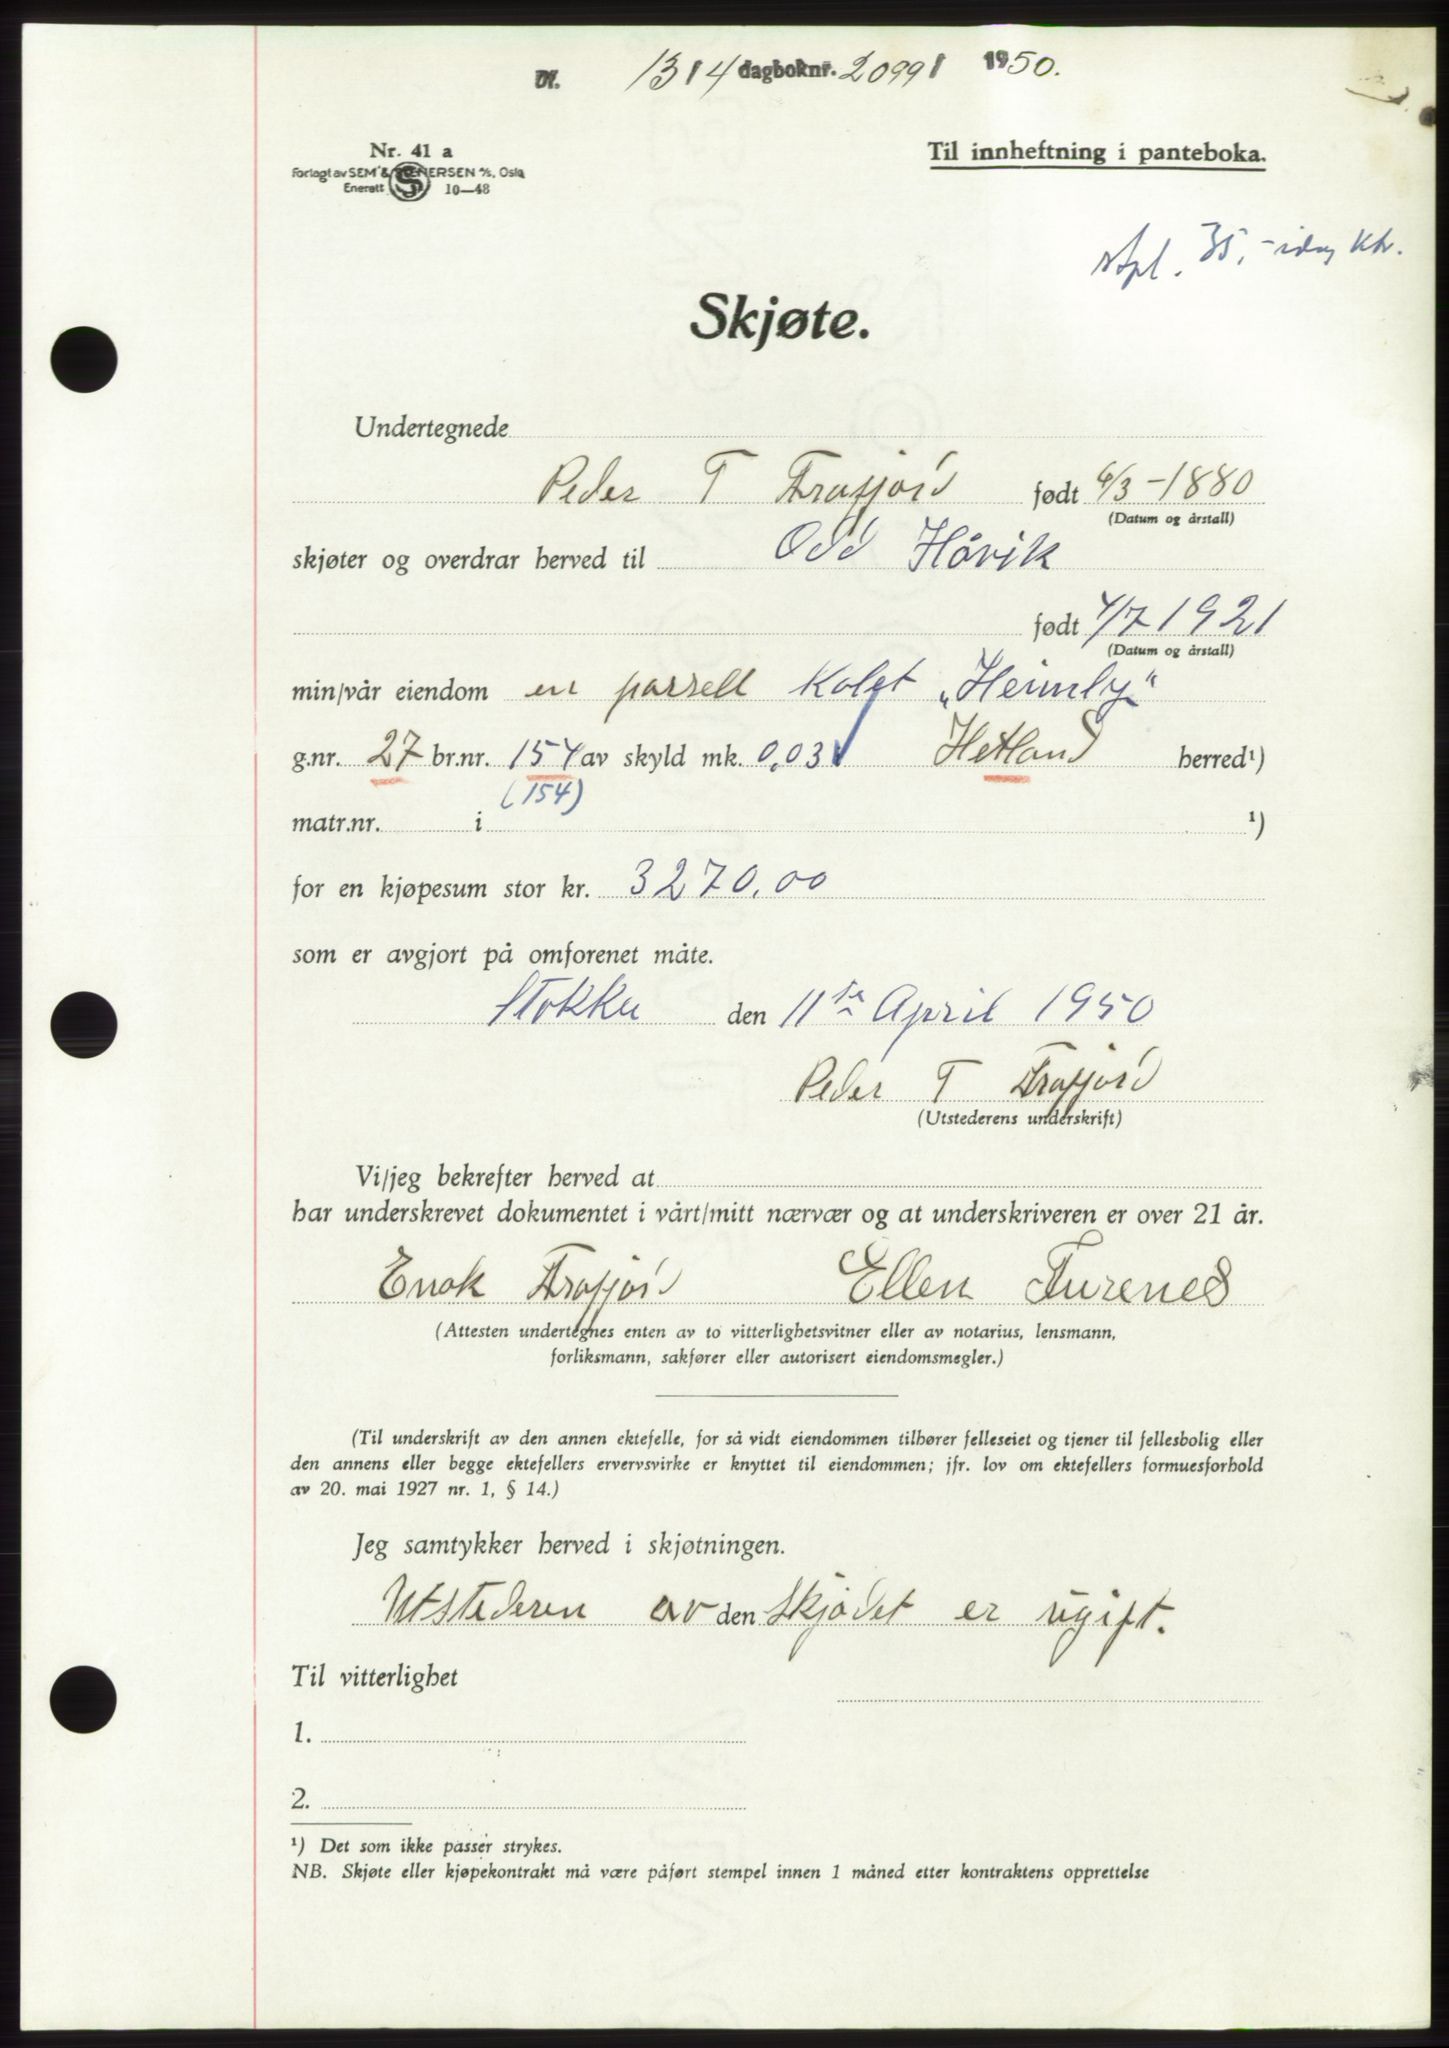 1314 dagboknr. 2099 1950.
Nr. 41 a
Forlagt av SEM & STENERSEN A/S, Oslo
Enerett 10—48
Til innheftning i panteboka.
stpl. 35,- idag
Skjøte.
Undertegnede
Peder T Frafjord født 6/3-1880
(Datum og årstall)
skjøter og overdrar herved til Odd Håvik
født 4/7 1921
(Datum og årstall)
min/vår eiendom en parsell kalet „Heimly“
g.nr. 27 br.nr. 154 av skyld mk. 0,03 Hetland herred¹)
(154)
matr.nr. i ¹)
for en kjøpesum stor kr. 3270,00
som er avgjort på omforenet måte.
Stokka den 11te April 1950
Peder T Frafjord
(Utstederens underskrift)
Vi/jeg bekrefter herved at
har underskrevet dokumentet i vårt/mitt nærvær og at underskriveren er over 21 år.
Enok Frafjord Ellen Furenes
(Attesten undertegnes enten av to vitterlighetsvitner eller av notarius, lensmann,
forliksmann, sakfører eller autorisert eiendomsmegler.)
(Til underskrift av den annen ektefelle, for så vidt eiendommen tilhører felleseiet og tjener til fellesbolig eller
den annens eller begge ektefellers ervervsvirke er knyttet til eiendommen; jfr. lov om ektefellers formuesforhold
av 20. mai 1927 nr. 1, § 14.)
Jeg samtykker herved i skjøtningen.
Utstederen av den Skjødet er ugift.
Til vitterlighet
1.
2.
¹) Det som ikke passer strykes.
NB. Skjøte eller kjøpekontrakt må være påført stempel innen 1 måned etter kontraktens opprettelse